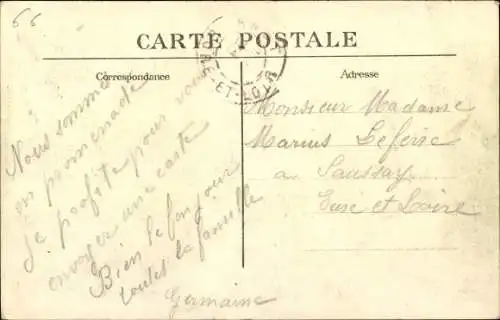 66
CARTE POSTALE
Correspondance
Adresse
ET-LOIR
Nous sommes
en promenade
je profite pour vous
envoyer une carte
Bien le bonjour
toutes la famille
Germaine
Monsieur Madame
Marius Lefeire
a Saussay
Eure et Loire